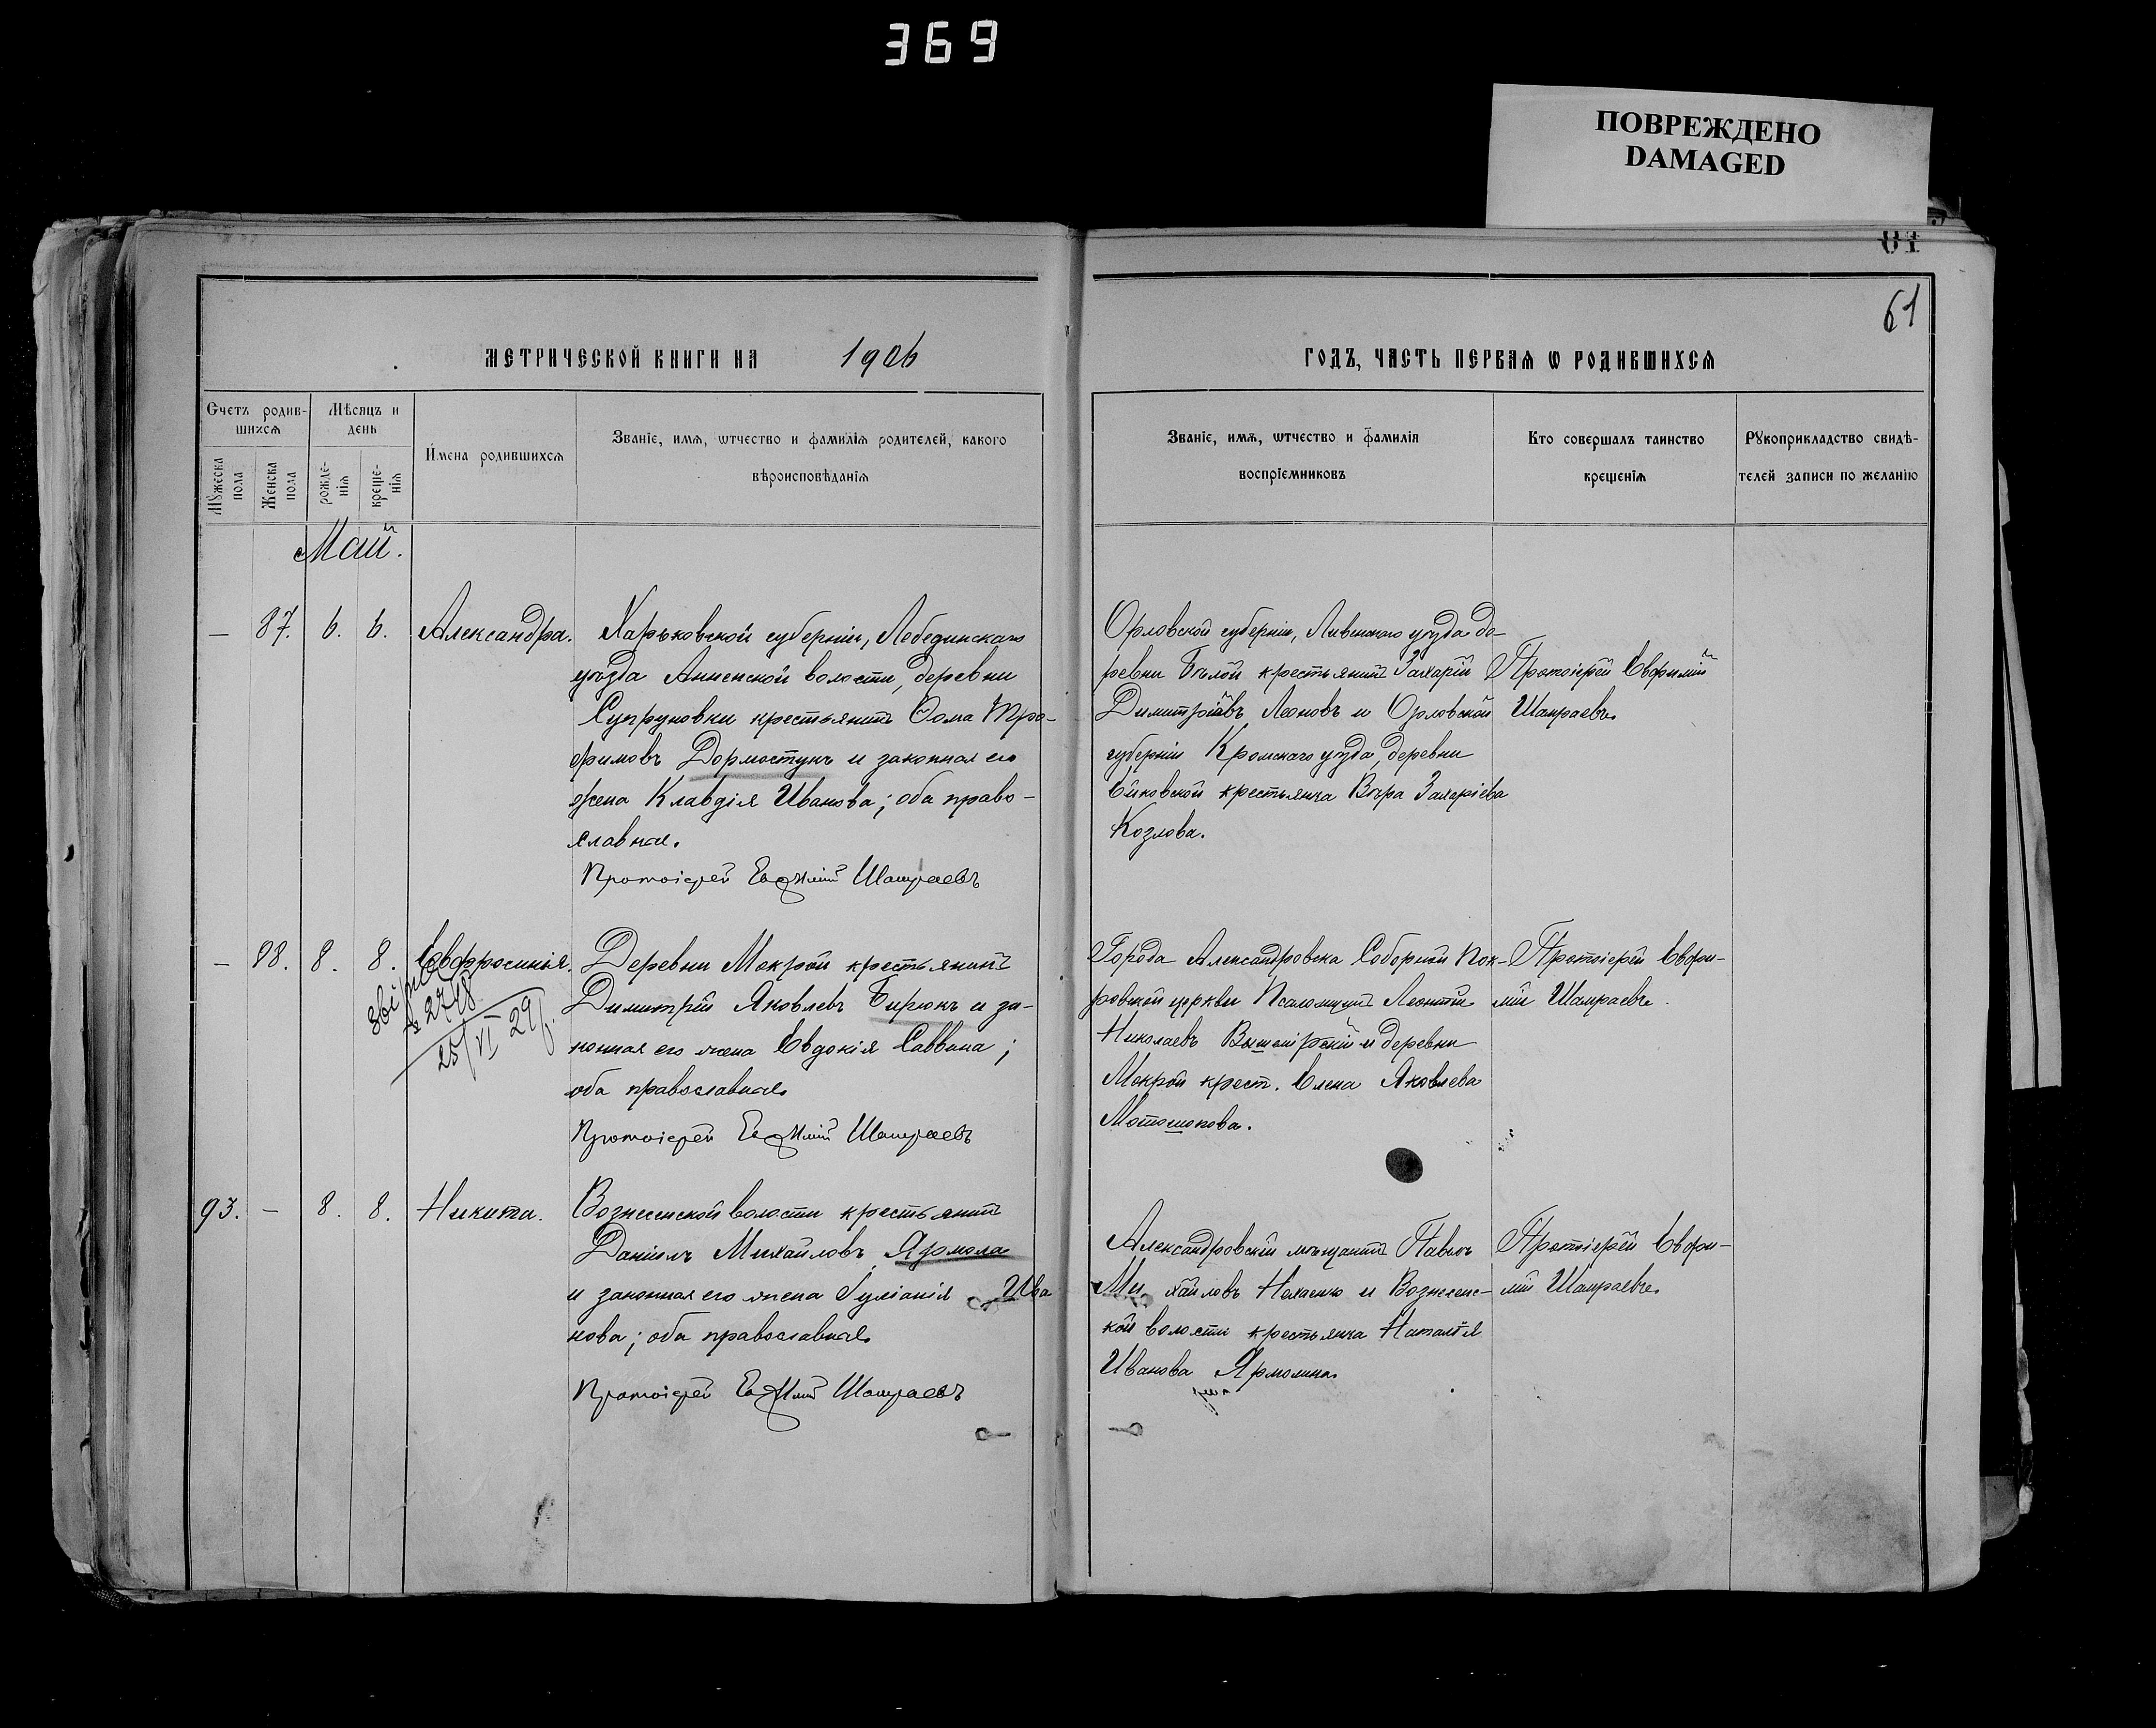 369
ПОВРЕЖДЕНО
DAMAGED
61
61
МЕТРИЧЕСКОЙ КНИГИ НА 1906
ГОДЪ, ЧАСТЬ ПЕРВАѦ Ѡ РОДИВШИХСѦ
Счетъ родив-
шихсѧ
Мужеска
пола
Женска
пола
Мѣсяцъ и
день
рожде-
нїѧ
креще-
нїѧ
Имена родившихсѧ
Званїе, имѧ, ѡтчество и фамилїѧ родителей, какого
вѣроисповѣданїѧ
Званїе, имѧ, ѡтчество и фамилїѧ
воспрїемниковъ
Кто совершалъ таинство
крещенїѧ
Рукоприкладство свидѣ-
телей записи по желанїю
Май.
— 87. 6. 6. Александра.
Харьковской губерніи, Лебединскаго
уѣзда Анненской волости, деревни
Супруновки крестьянинъ Ѳома Тро-
фимовъ Дормостунъ и законная его
жена Клавдія Иванова; оба право-
славные.
Протоіерей Евфимій Шамраевъ
Орловской губерніи, Ливенскаго уѣзда де-
ревни Бѣлой крестьянинъ Захарій
Димитріевъ Леоновъ и Орловской
губерніи Кромскаго уѣзда, деревни
крестьянка Вѣра Захаріева
Козлова.
Протоіерей Евфимій
Шамраевъ.
— 88. 8. 8. Евфросинія.
№ 2748
25/VI 29 г.
Деревни Мокрой крестьянинъ
Димитрій Яковлевъ Бирюкъ и за-
конная его жена Евдокія Саввина;
оба православные.
Протоіерей Евфимій Шамраевъ
Города Александровска Соборной Пок-
ровской церкви Псаломщикъ Леонтій
Николаевъ Вышемірскій и деревни
Мокрой крест. Елена Яковлева
Мотошокова.
Протоіерей Евфи-
мій Шамраевъ.
93. — 8. 8. Никита.
Вознесенской волости крестьянинъ
Даніилъ Михайловъ Ярмола
и законная его жена Іуліанія Ива
нова; оба православные.
Протоіерей Евфимій Шамраевъ
Александровскій мѣщанинъ Павелъ
Михайловъ и Вознесенс-
кой волости крестьянка Наталія
Иванова Ярмолина.
Протоіерей Евфи-
мій Шамраевъ.